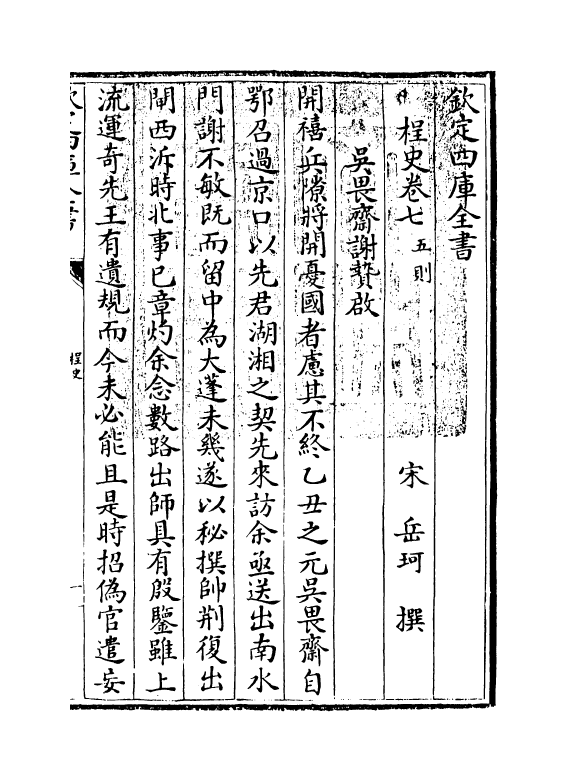 欽定四庫全書
桯史卷七 五則
宋 岳珂 撰
吳畏齋謝贄啟
開禧兵隙將開憂國者慮其不終乙丑之元吳畏齋自
鄂召過京口以先君湖湘之契先來訪余亟送出南水
門謝不敏既而留中為大蓬未幾遂以秘撰帥荆復出
閘西泝時北事已章灼余念數路出師具有殷鑒雖上
流運奇先王有遺規而今未必能且是時招偽官遣妄
桯史